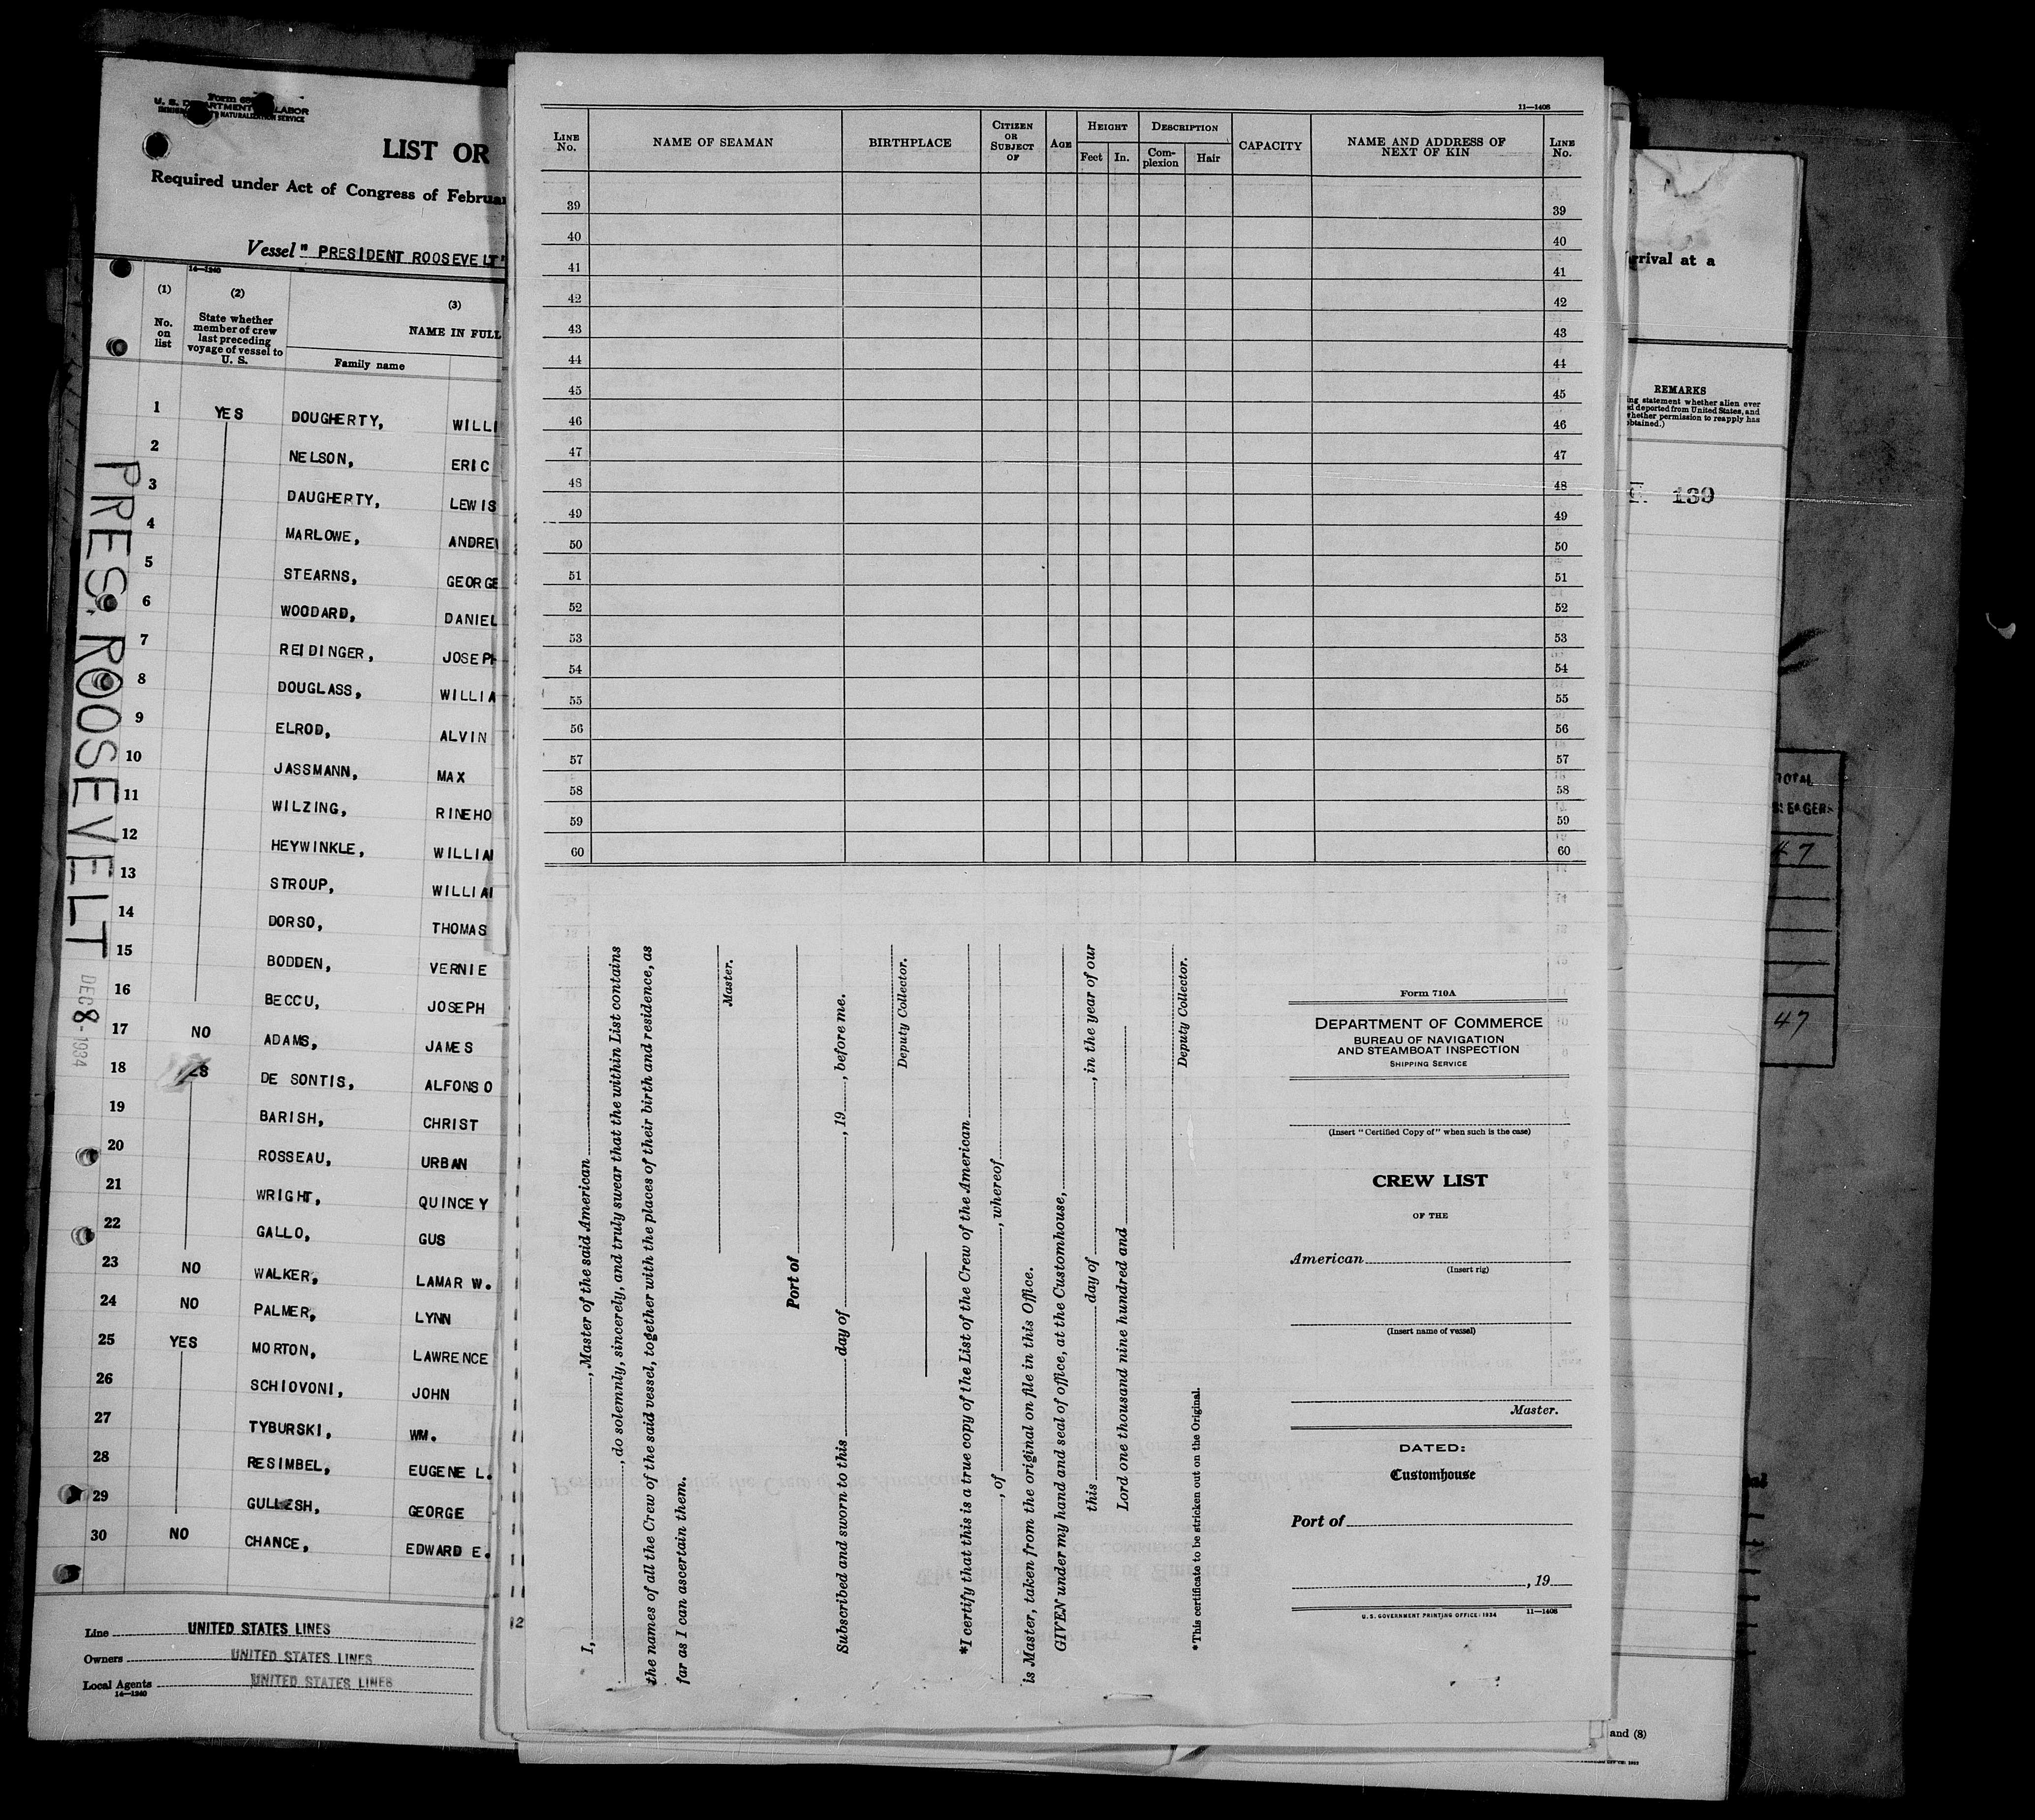 U. S. DEPARTMENT LABOR
NATURALIZATION SERVICE
LIST OR
Required under Act of Congress of Februar
Vessel " PRESIDENT ROOSEVELT"
14—1240
(1) (2) (3)
No. on list
State whether member of crew last preceding voyage of vessel to U. S.
NAME IN FULL
Family name
1 YES DOUGHERTY, WILLI
2 NELSON, ERIC
3 DAUGHERTY, LEWIS
4 MARLOWE, ANDREW
5 STEARNS, GEORGE
6 WOODARD, DANIEL
7 REIDINGER, JOSEPH
8 DOUGLASS, WILLIA
9 ELROD, ALVIN
10 JASSMANN, MAX
11 WILZING, RINEHO
12 HEYWINKLE, WILLIAM
13 STROUP, WILLIAM
14 DORSO, THOMAS
15 BODDEN, VERNIE
16 BECCU, JOSEPH
17 NO ADAMS, JAMES
18 DE SONTIS, ALFONSO
19 BARISH, CHRIST
20 ROSSEAU, URBAN
21 WRIGHT, QUINCEY
22 GALLO, GUS
23 NO WALKER, LAMAR W.
24 NO PALMER, LYNN
25 YES MORTON, LAWRENCE
26 SCHIOVONI, JOHN
27 TYBURSKI, WM.
28 RESIMBEL, EUGENE L.
29 GULLESH, GEORGE
30 NO CHANCE, EDWARD E.
Line UNITED STATES LINES
Owners UNITED STATES LINES
Local Agents UNITED STATES LINES
14—1240
PRES. ROOSEVELT
DEC 8 - 1934
11—1408
LINE No.
NAME OF SEAMAN
BIRTHPLACE
CITIZEN OR SUBJECT OF
AGE
HEIGHT
Feet In.
DESCRIPTION
Complexion Hair
CAPACITY
NAME AND ADDRESS OF NEXT OF KIN
LINE No.
39 39
40 40
41 41
42 42
43 43
44 44
45 45
46 46
47 47
48 48
49 49
50 50
51 51
52 52
53 53
54 54
55 55
56 56
57 57
58 58
59 59
60 60
I, , Master of the said American
, do solemnly, sincerely, and truly swear that the within List contains
the names of all the Crew of the said vessel, together with the places of their birth and residence, as
far as I can ascertain them.
Master.
Port of
Subscribed and sworn to this day of , 19 , before me.
Deputy Collector.
*I certify that this is a true copy of the List of the Crew of the American
, of , whereof
is Master, taken from the original on file in this Office.
GIVEN under my hand and seal of office, at the Customhouse,
this day of , in the year of our
Lord one thousand nine hundred and
Deputy Collector.
*This certificate to be stricken out on the Original.
Form 710A
DEPARTMENT OF COMMERCE
BUREAU OF NAVIGATION
AND STEAMBOAT INSPECTION
SHIPPING SERVICE
(Insert "Certified Copy of" when such is the case)
CREW LIST
OF THE
American
(Insert rig)
(Insert name of vessel)
Master.
DATED:
Customhouse
Port of
, 19
U. S. GOVERNMENT PRINTING OFFICE: 1934 11—1408
rrival at a
REMARKS
ing statement whether alien ever
d deported from United States, and
whether permission to reapply has
obtained.)
139
TOTAL
47
47
and (8)